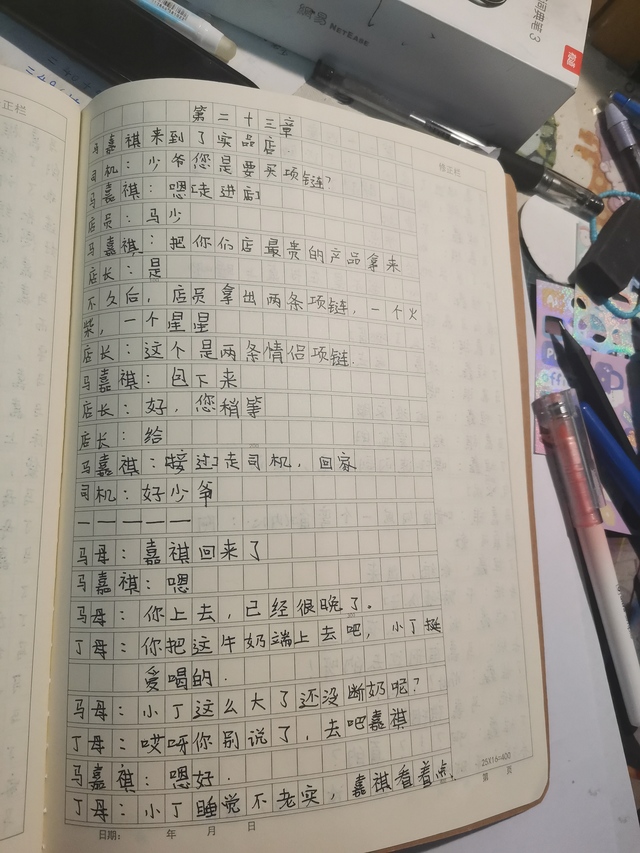 网易 NETEASE
词典笔3
正栏
修正栏
第二十三章
马嘉祺来到了实品店.
司机:少爷您是要买项链?
马嘉祺:嗯[走进店]
店员:马少
马嘉祺:把你们店最贵的产品拿来
店长:是
不久后,店员拿出两条项链,一个火
柴,一个星星
店长:这个是两条情侣项链.
马嘉祺:包下来
店长:好,您稍等
店长:给
马嘉祺:[接过]走司机,回家
司机:好少爷
一一一一一
马母:嘉祺回来了
马嘉祺:嗯
马母:你上去,已经很晚了。
丁母:你把这牛奶端上去吧,小丁挺
爱喝的.
马母:小丁这么大了还没断奶呢?
丁母:哎呀你别说了,去吧嘉祺
马嘉祺:嗯好.
丁母:小丁睡觉不老实,嘉祺看着点.
25X16=400
日期: 年 月 日
第 页